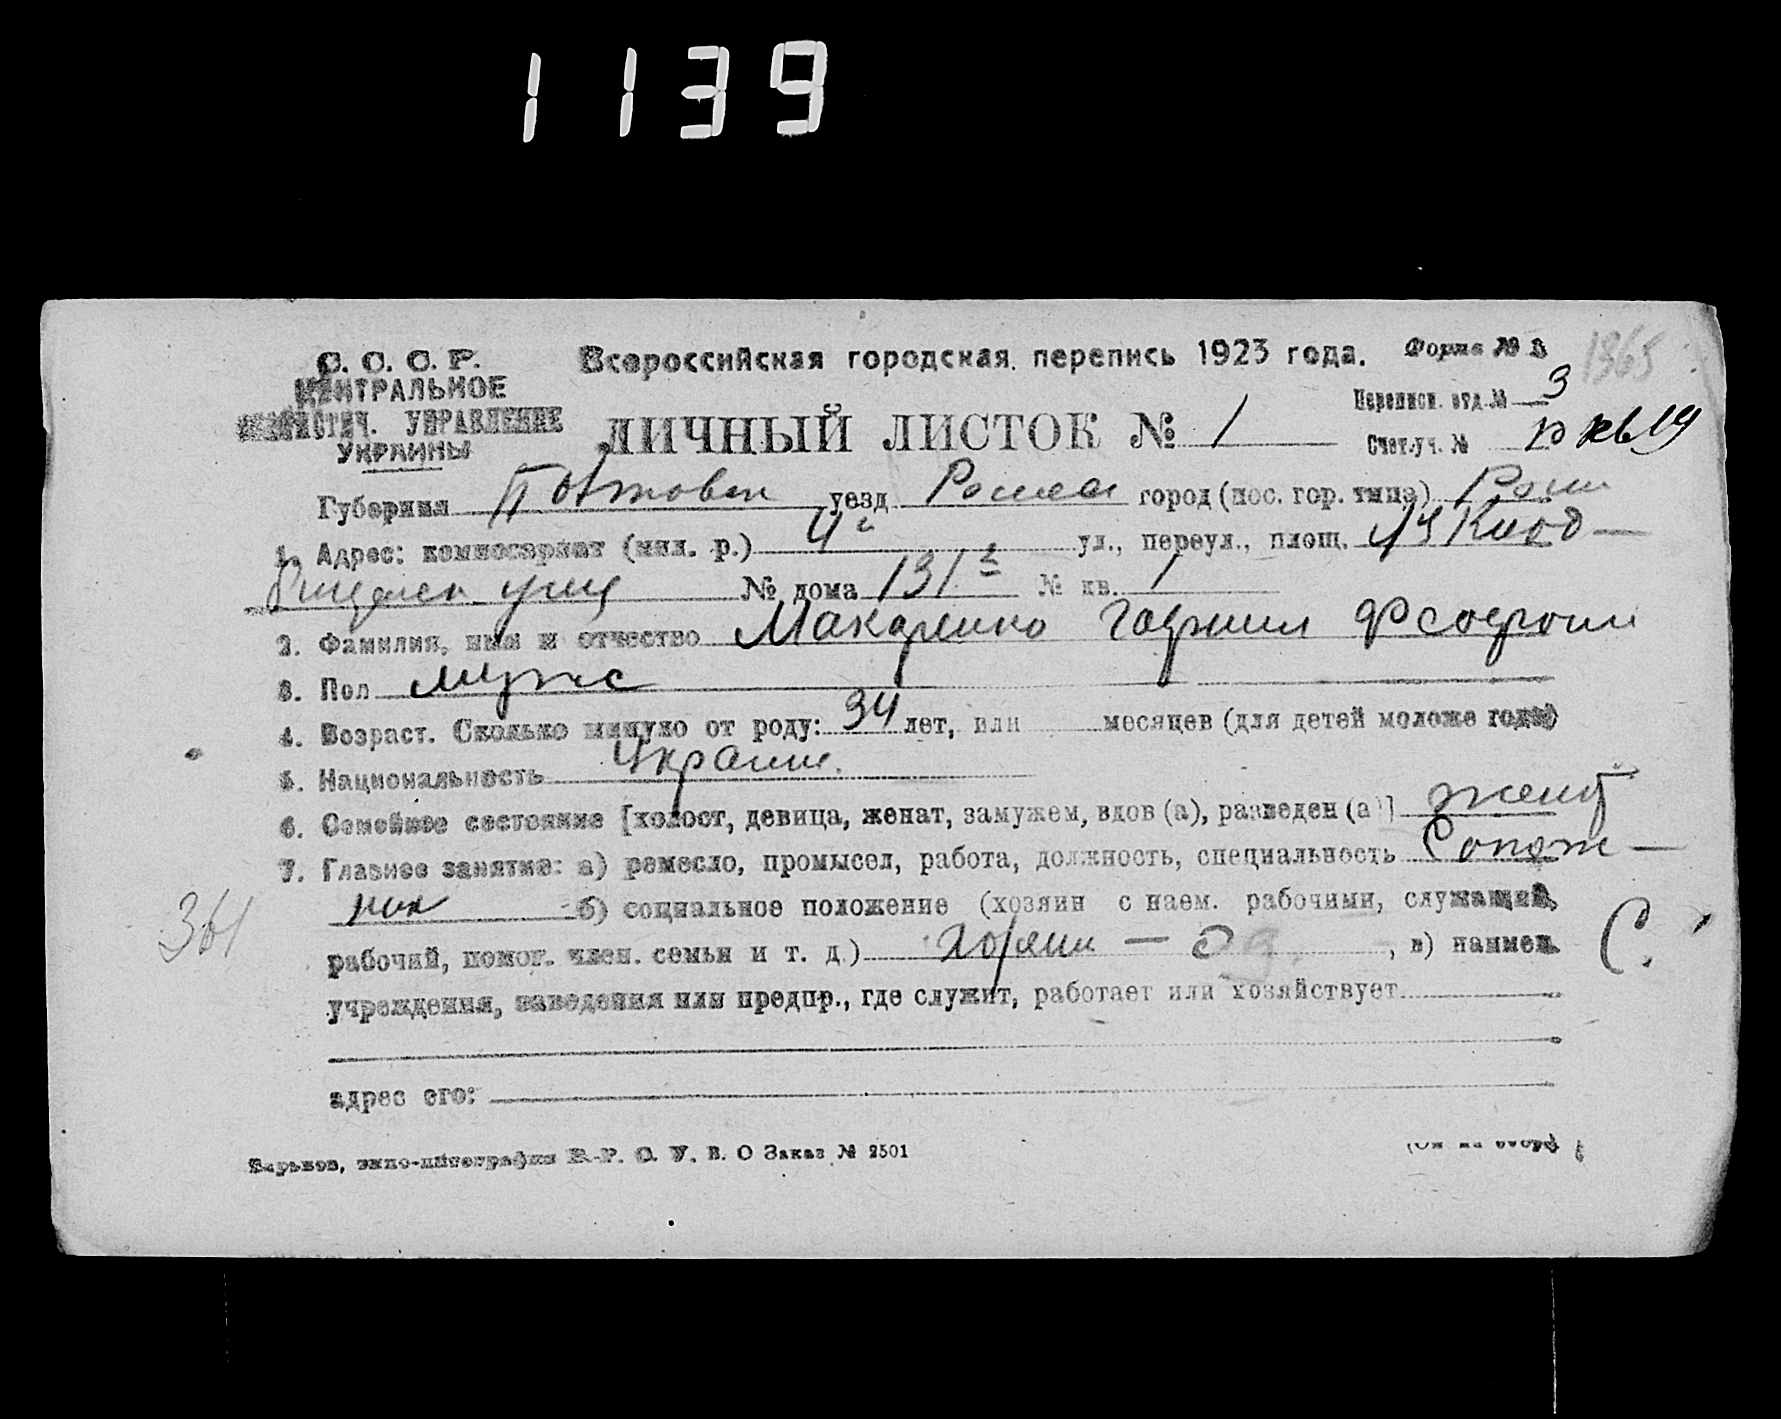 1139
С. С. С. Р. Всероссийская городская перепись 1923 года. Форма № 1365
ЦЕНТРАЛЬНОЕ Переписн. отд. № 3
СТАТИСТИЧ. УПРАВЛЕНИЕ ЛИЧНЫЙ ЛИСТОК № 1 Счет.уч. № кв 19
УКРАИНЫ
Губерния Полтавск уезд Ромен город (пос. гор. типа) Ромн
1. Адрес: комиссариат (мил. р.) 4 ул., переул., площ.
№ дома 131 № кв. 1
2. Фамилия, имя и отчество Макаренко Гавриил
3. Пол мужс
4. Возраст. Сколько минуло от роду: 34 лет, или месяцев (для детей моложе года)
5. Национальность Украин.
6. Семейное состояние [холост, девица, женат, замужем, вдов (а), разведен (а)] жент
7. Главное занятие: а) ремесло, промысел, работа, должность, специальность Сапож-
ник б) социальное положение (хозяин с наем. рабочими, служащий,
361 рабочий, помог. член. семьи и т. д.) хозяин — од , в) наимен. С.
учреждения, заведения или предпр., где служит, работает или хозяйствует
адрес его:
Харьков, типо-литография В. О Заказ № 2501